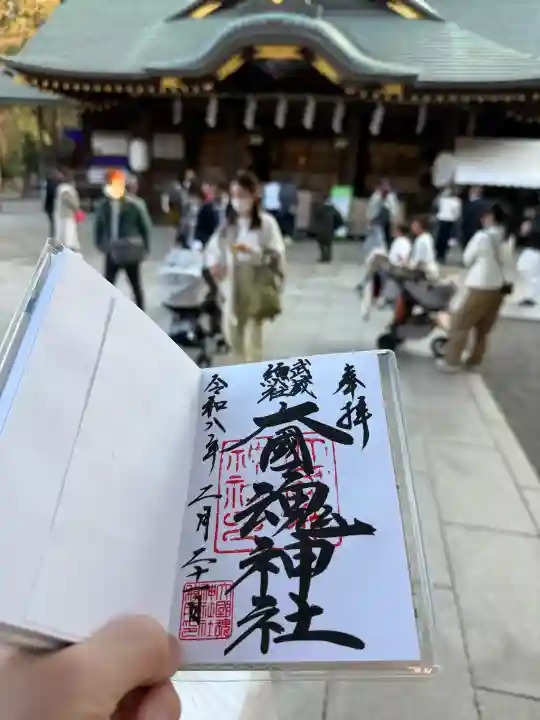 奉拝
武蔵
總社
大國魂神社
令和八年二月二十一日